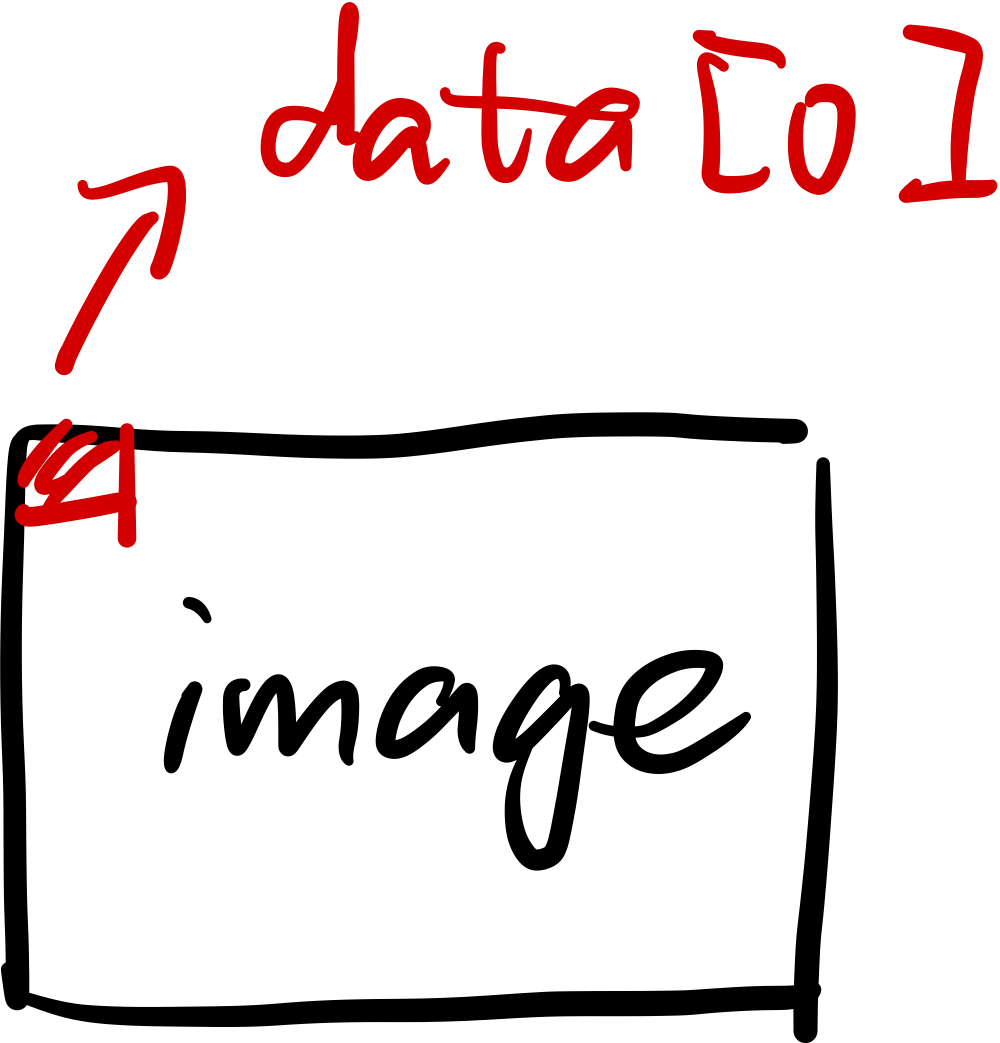 data[0]
image